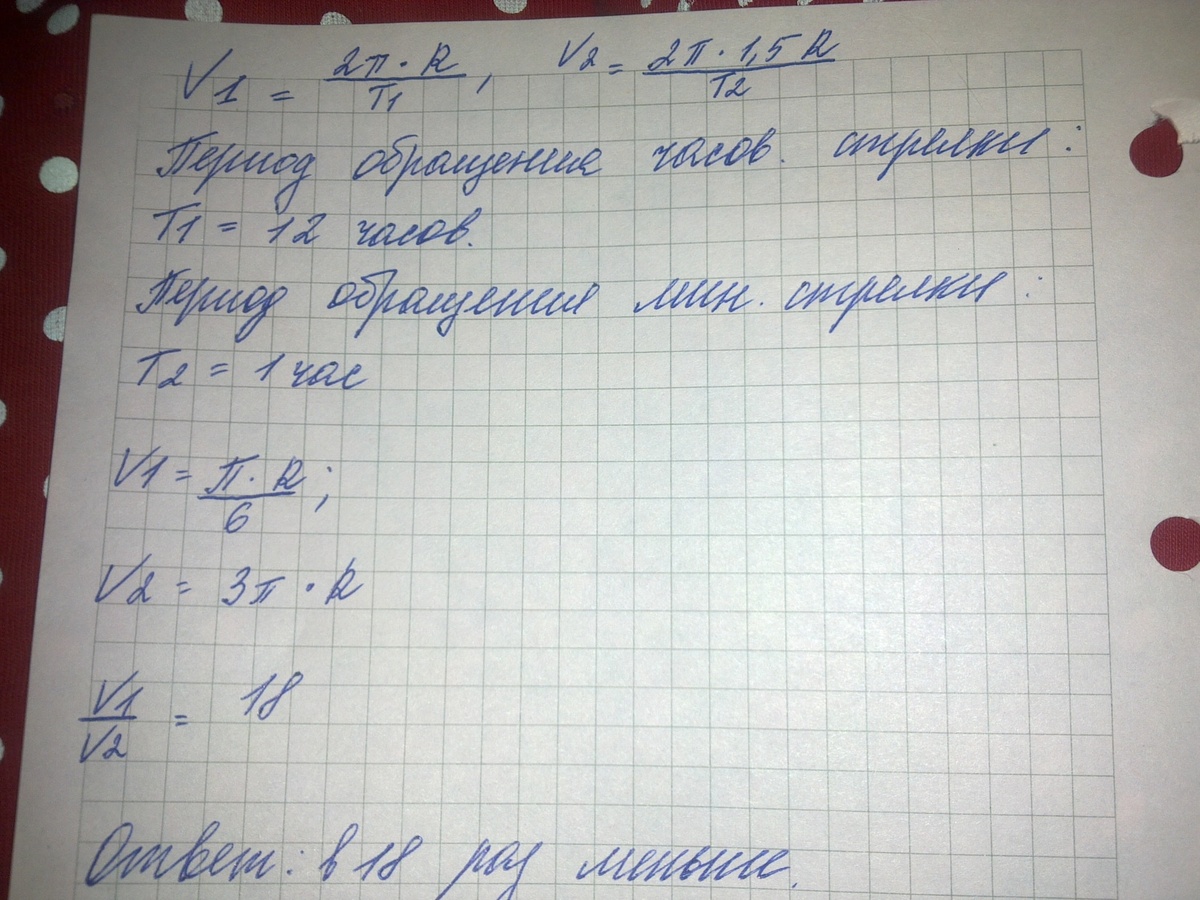 V1 = 2π · R / T1 , V2 = 2π · 1,5 R / T2
Период обращения часов. стрелки:
T1 = 12 часов.
Период обращения мин. стрелки:
T2 = 1 час
V1 = π · R / 6 ;
V2 = 3π · R
V1 / V2 = 18
Ответ: в 18 раз меньше.